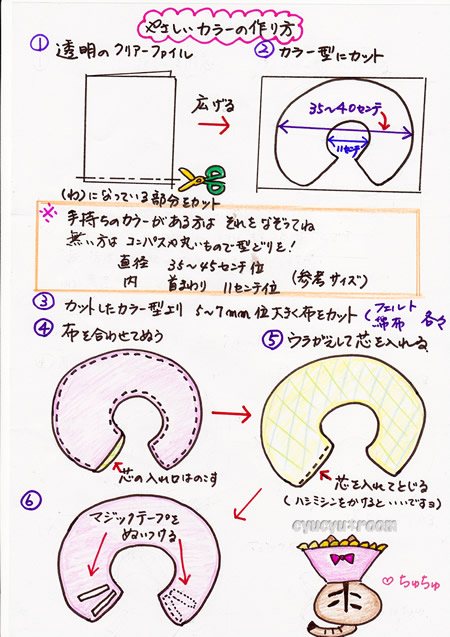 やさしいカラーの作り方
① 透明のクリアーファイル
② カラー型にカット
広げる
35〜40センチ
11センチ
(わ)になっている部分をカット
※
手持ちのカラーがある方は それをなぞってね
無い方は コンパスや丸いもので型どりを!
直径 35〜45センチ位
内 首まわり 11センチ位
(参考サイズ)
③ カットしたカラー型より 5〜7mm位大きく布をカット
(フェルト
綿布 各々
④ 布を合わせてぬう
⑤ ウラがえして芯を入れる
芯の入れ口はのこす
芯を入れてとじる
(ハシミシンをかけると・・いいですヨ)
⑥
マジックテープを
ぬいつける
cyucyu*room
♡ちゅちゅ